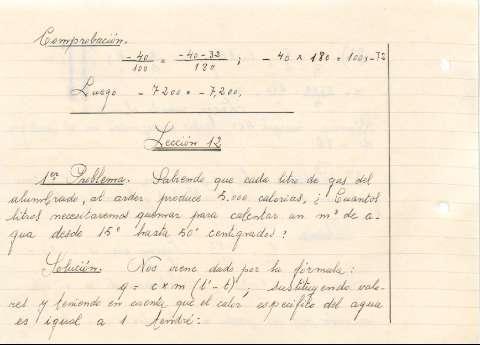 Comprobación.
-40/100 = -40-32/180 ; - 40 x 180 = 100x-72
Luego - 7200 = - 7,200,
Lección 12
1er Problema. Sabiendo que cada litro de gas del
alumbrado, al arder produce 5.000 calorías, ¿Cuantos
litros necesitaremos quemar para calentar un m³ de a-
gua desde 15º hasta 50º centigrados?
Solución. Nos viene dado por la fórmula:
q = c x m (t'- t), sustituyendo valo-
res y teniendo en cuenta que el calor especifico del agua
es igual a 1 tendré: